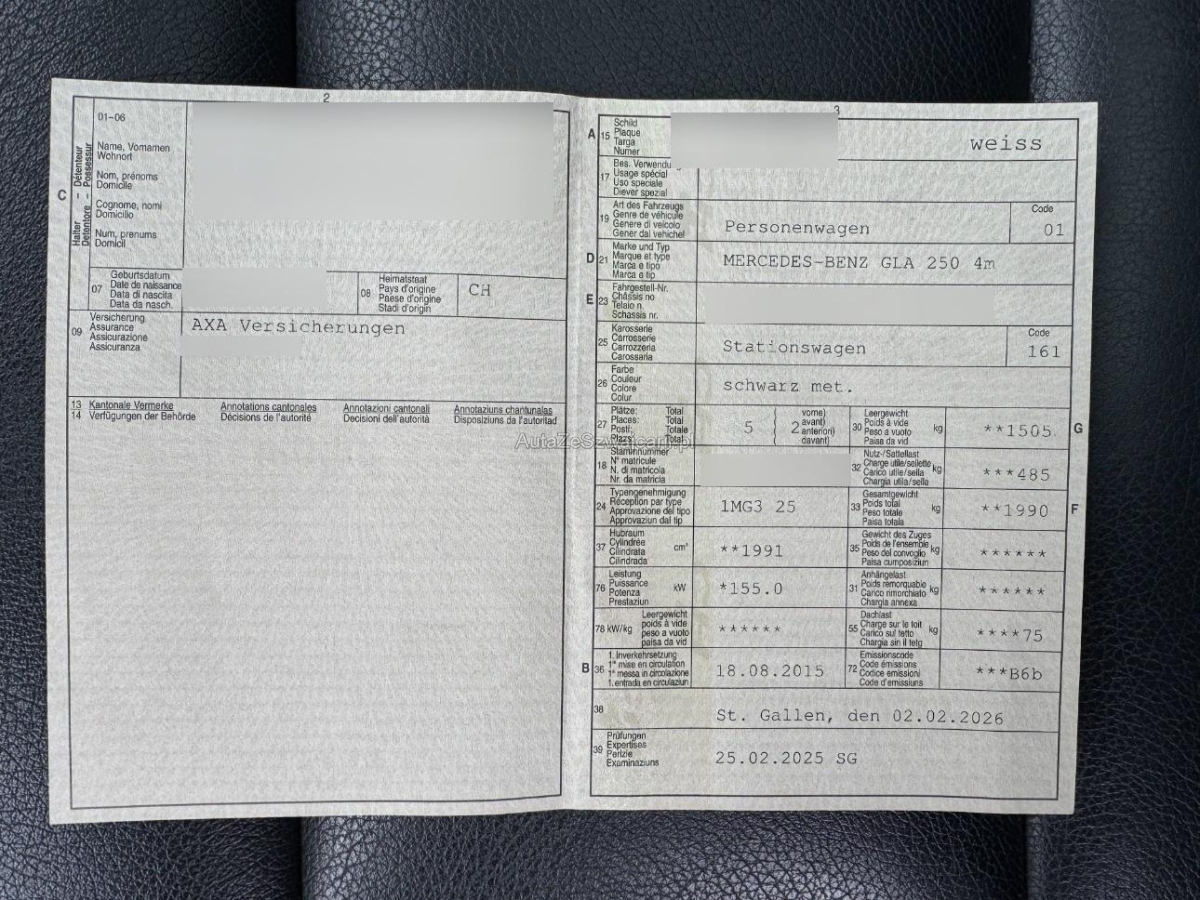 2
01-06
Name, Vornamen
Wohnort
Nom, prénoms
Domicile
Cognome, nomi
Domicilio
Num, prenums
Domicil
C
Halter - Détenteur
Detentore - Possessur
07
Geburtsdatum
Date de naissance
Data di nascita
Data da nasch.
08
Heimatstaat
Pays d'origine
Paese d'origine
Stadi d'origin
CH
09
Versicherung
Assurance
Assicurazione
Assicuranza
AXA Versicherungen
13 Kantonale Vermerke Annotations cantonales Annotazioni cantonali Annotaziuns chantunalas
14 Verfügungen der Behörde Décisions de l'autorité Decisioni dell'autorità Disposiziuns da l'autoritad
3
A
15
Schild
Plaque
Targa
Numer
weiss
17
Bes. Verwendu
Usage spécial
Uso speciale
Diever spezial
19
Art des Fahrzeugs
Genre de véhicule
Genere di veicolo
Gener dal vehichel
Personenwagen
Code
01
D
21
Marke und Typ
Marque et type
Marca e tipo
Marca e tip
MERCEDES-BENZ GLA 250 4m
E
23
Fahrgestell-Nr.
Châssis no
Telaio n.
Schassis nr.
25
Karosserie
Carrosserie
Carrozzeria
Carossaria
Stationswagen
Code
161
26
Farbe
Couleur
Colore
Colur
schwarz met.
27
Plätze: Total
Places: Total
Posti: Totale
Plazs: Total
5
( 2
vorne)
avant)
anteriori)
davant)
30
Leergewicht
Poids à vide
Peso a vuoto
Paisa da vid
kg
**1505
G
AutaZeSzwajcarii.pl
18
Stammnummer
N° matricule
N. di matricola
Nr. da matricla
32
Nutz-/Sattellast
Charge utile/sellette
Carico utile/sella
Chargia utila/sella
kg
***485
24
Typengenehmigung
Réception par type
Approvazione del tipo
Approvaziun dal tip
1MG3 25
33
Gesamtgewicht
Poids total
Peso totale
Paisa totala
kg
**1990
F
37
Hubraum
Cylindrée
Cilindrata
Cilindrada
cm³
**1991
35
Gewicht des Zuges
Poids de l'ensemble
Peso del convoglio
Paisa cumposiziun
kg
******
76
Leistung
Puissance
Potenza
Prestaziun
kW
*155.0
31
Anhängelast
Poids remorquable
Carico rimorchiato
Chargia annexa
kg
******
78 kW/kg
Leergewicht
poids à vide
peso a vuoto
paisa da vid
******
55
Dachlast
Charge sur le toit
Carico sul tetto
Chargia sin il tetg
kg
****75
B
36
1. Inverkehrsetzung
1re mise en circulation
1a messa in circolazione
1. entrada en circulaziun
18.08.2015
72
Emissionscode
Code émissions
Codice emissioni
Code d'emissiuns
***B6b
38
St. Gallen, den 02.02.2026
39
Prüfungen
Expertises
Perizie
Examinaziuns
25.02.2025 SG